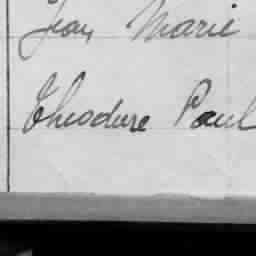 Jean Marie
Théodure Paul